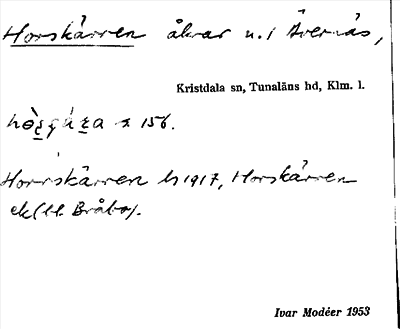 Horskärren åkrar u. / Övernäs,
Kristdala sn, Tunaläns hd, Klm. l.
156.
Horrskärren h 1917, Horskärren
ek (ll. Bråbo).
Ivar Modéer 1953